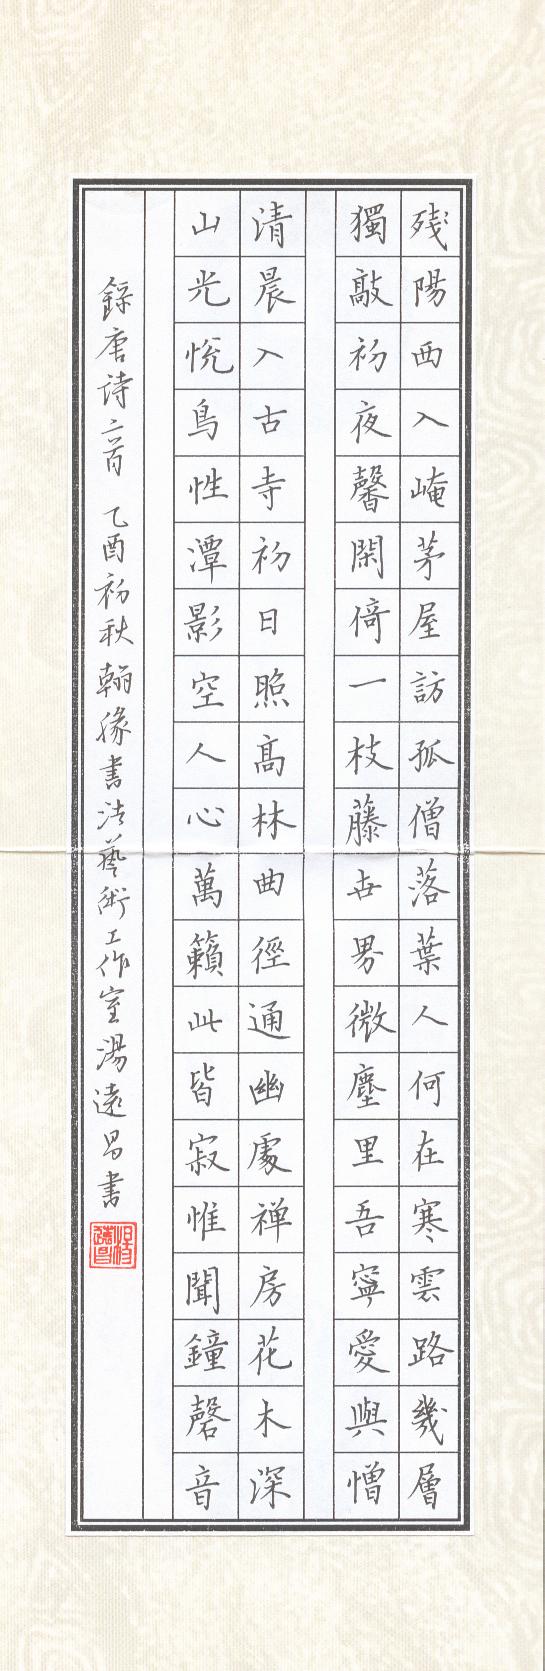 殘陽西入崦茅屋訪孤僧落葉人何在寒雲路幾層
獨敲初夜馨閑倚一枝藤世界微塵里吾寧愛與憎
清晨入古寺初日照高林曲徑通幽處禅房花木深
山光悦鳥性潭影空人心萬籟此皆寂惟聞鐘磬音
錄唐詩二首 乙酉初秋翰緣書法藝術工作室湯遠昌書